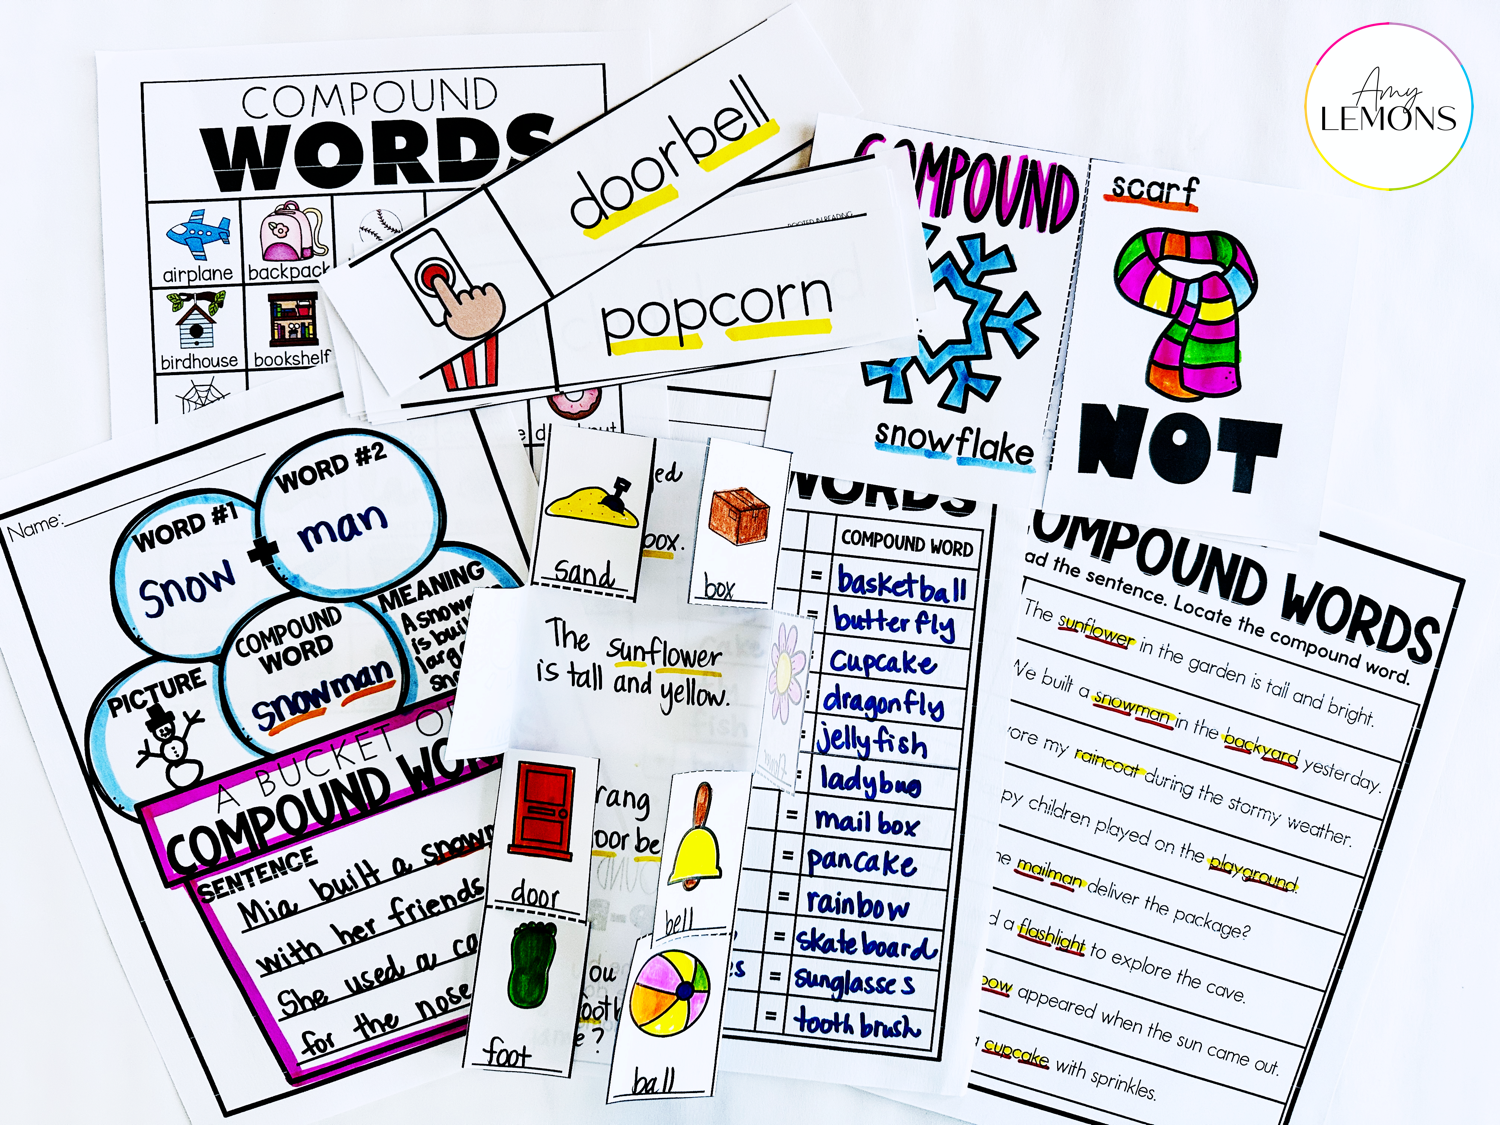 Amy
LEMONS
COMPOUND
WORDS
airplane
backpack
birdhouse
bookshelf
doorbell
popcorn
COMPOUND
snowflake
scarf
NOT
Name:
WORD #1
snow
+
WORD #2
man
COMPOUND
WORD
snowman
MEANING
A snow
is buil
larg
sno
PICTURE
A BUCKET O
COMPOUND WOR
SENTENCE
Mia built a snow
with her friends
She used a ca
for the nose
sand
ed
box.
box
The sunflower
is tall and yellow.
door
rang
oor be
bell
foot
ou
oot
e?
ball
WORDS
COMPOUND WORD
= basketball
= butterfly
cupcake
dragonfly
jellyfish
ladybug
= mailbox
= pancake
= rainbow
= skateboard
es = sunglasses
= toothbrush
OMPOUND WORDS
ad the sentence. Locate the compound word.
The sunflower in the garden is tall and bright.
We built a snowman in the backyard yesterday.
ore my raincoat during the stormy weather.
py children played on the playground.
he mailman deliver the package?
d a flashlight to explore the cave.
bow appeared when the sun came out.
a cupcake with sprinkles.